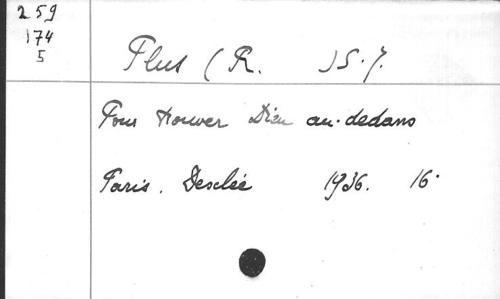 259
174
5
Plus (R. ) S. J.
Pour trouver Dieu au-dedans
Paris. Desclée 1936. 16°